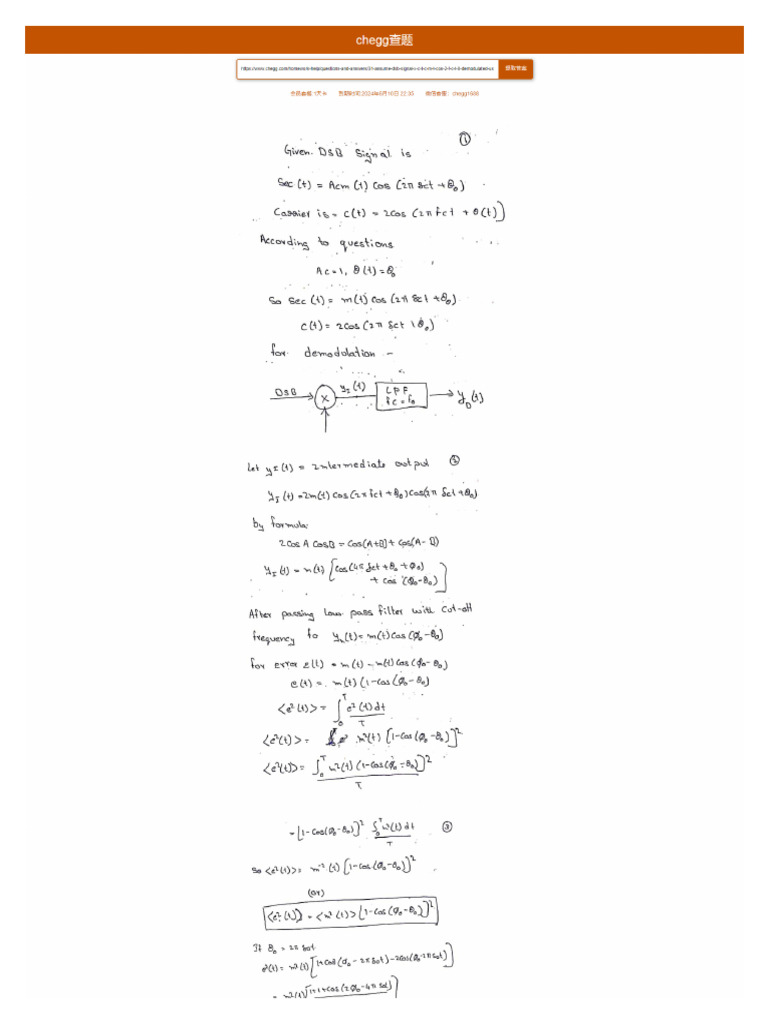 chegg查题
获取答案
chegg1508
①
Given DSB Signal is
Sec(t) = Acm(t) Cos (2π fct + θ₀)
Carrier is = C(t) = 2cos (2π fct + θ(t)]
According to questions
Ac=1, θ(t)=θ₀
So Sec(t) = m(t) Cos (2π fct + θ₀)
C(t) = 2Cos (2π fct + θ₀)
for demodulation –
DSB X yI(t) LPF fc = f₀ yD(t)
Let yI(t) = Intermediate output ②
yI(t) = 2m(t) Cos (2π fct + ϕ₀) Cos(2π fct + θ₀)
by formula
2Cos A CosB = Cos(A+B) + Cos(A-B)
yI(t) = m(t) [Cos(4π fct + θ₀ + ϕ₀)
+ Cos (ϕ₀-θ₀)]
After passing low pass filter with cut-off
frequency fo yn(t) = m(t) Cos (ϕ₀-θ₀)
for error e(t) = m(t) - m(t) Cos (ϕ₀-θ₀)
e(t) = m(t) (1-Cos (ϕ₀-θ₀)
<e²(t)> = ∫₀ᵀ e²(t) dt / T
<e²(t)> = m²(t) [1-Cos (ϕ₀-θ₀)]²
<e²(t)> = ∫₀ᵀ m²(t) (1-Cos(ϕ₀-θ₀)]² / T
= [1-Cos(ϕ₀-θ₀)]² ∫₀ᵀ m²(t) dt / T ③
So <e²(t)> = m²(t) [1-Cos (ϕ₀-θ₀)]²
(or)
<e²(t)> = <m²(t)> [1-Cos (ϕ₀-θ₀)]²
If θ₀ = 2π fot
e²(t) = m²(t) [1+Cos² (ϕ₀-2π fot) - 2Cos(ϕ₀-2π fot)]
= m²(t) [1+1+Cos (2ϕ₀-4π fot)